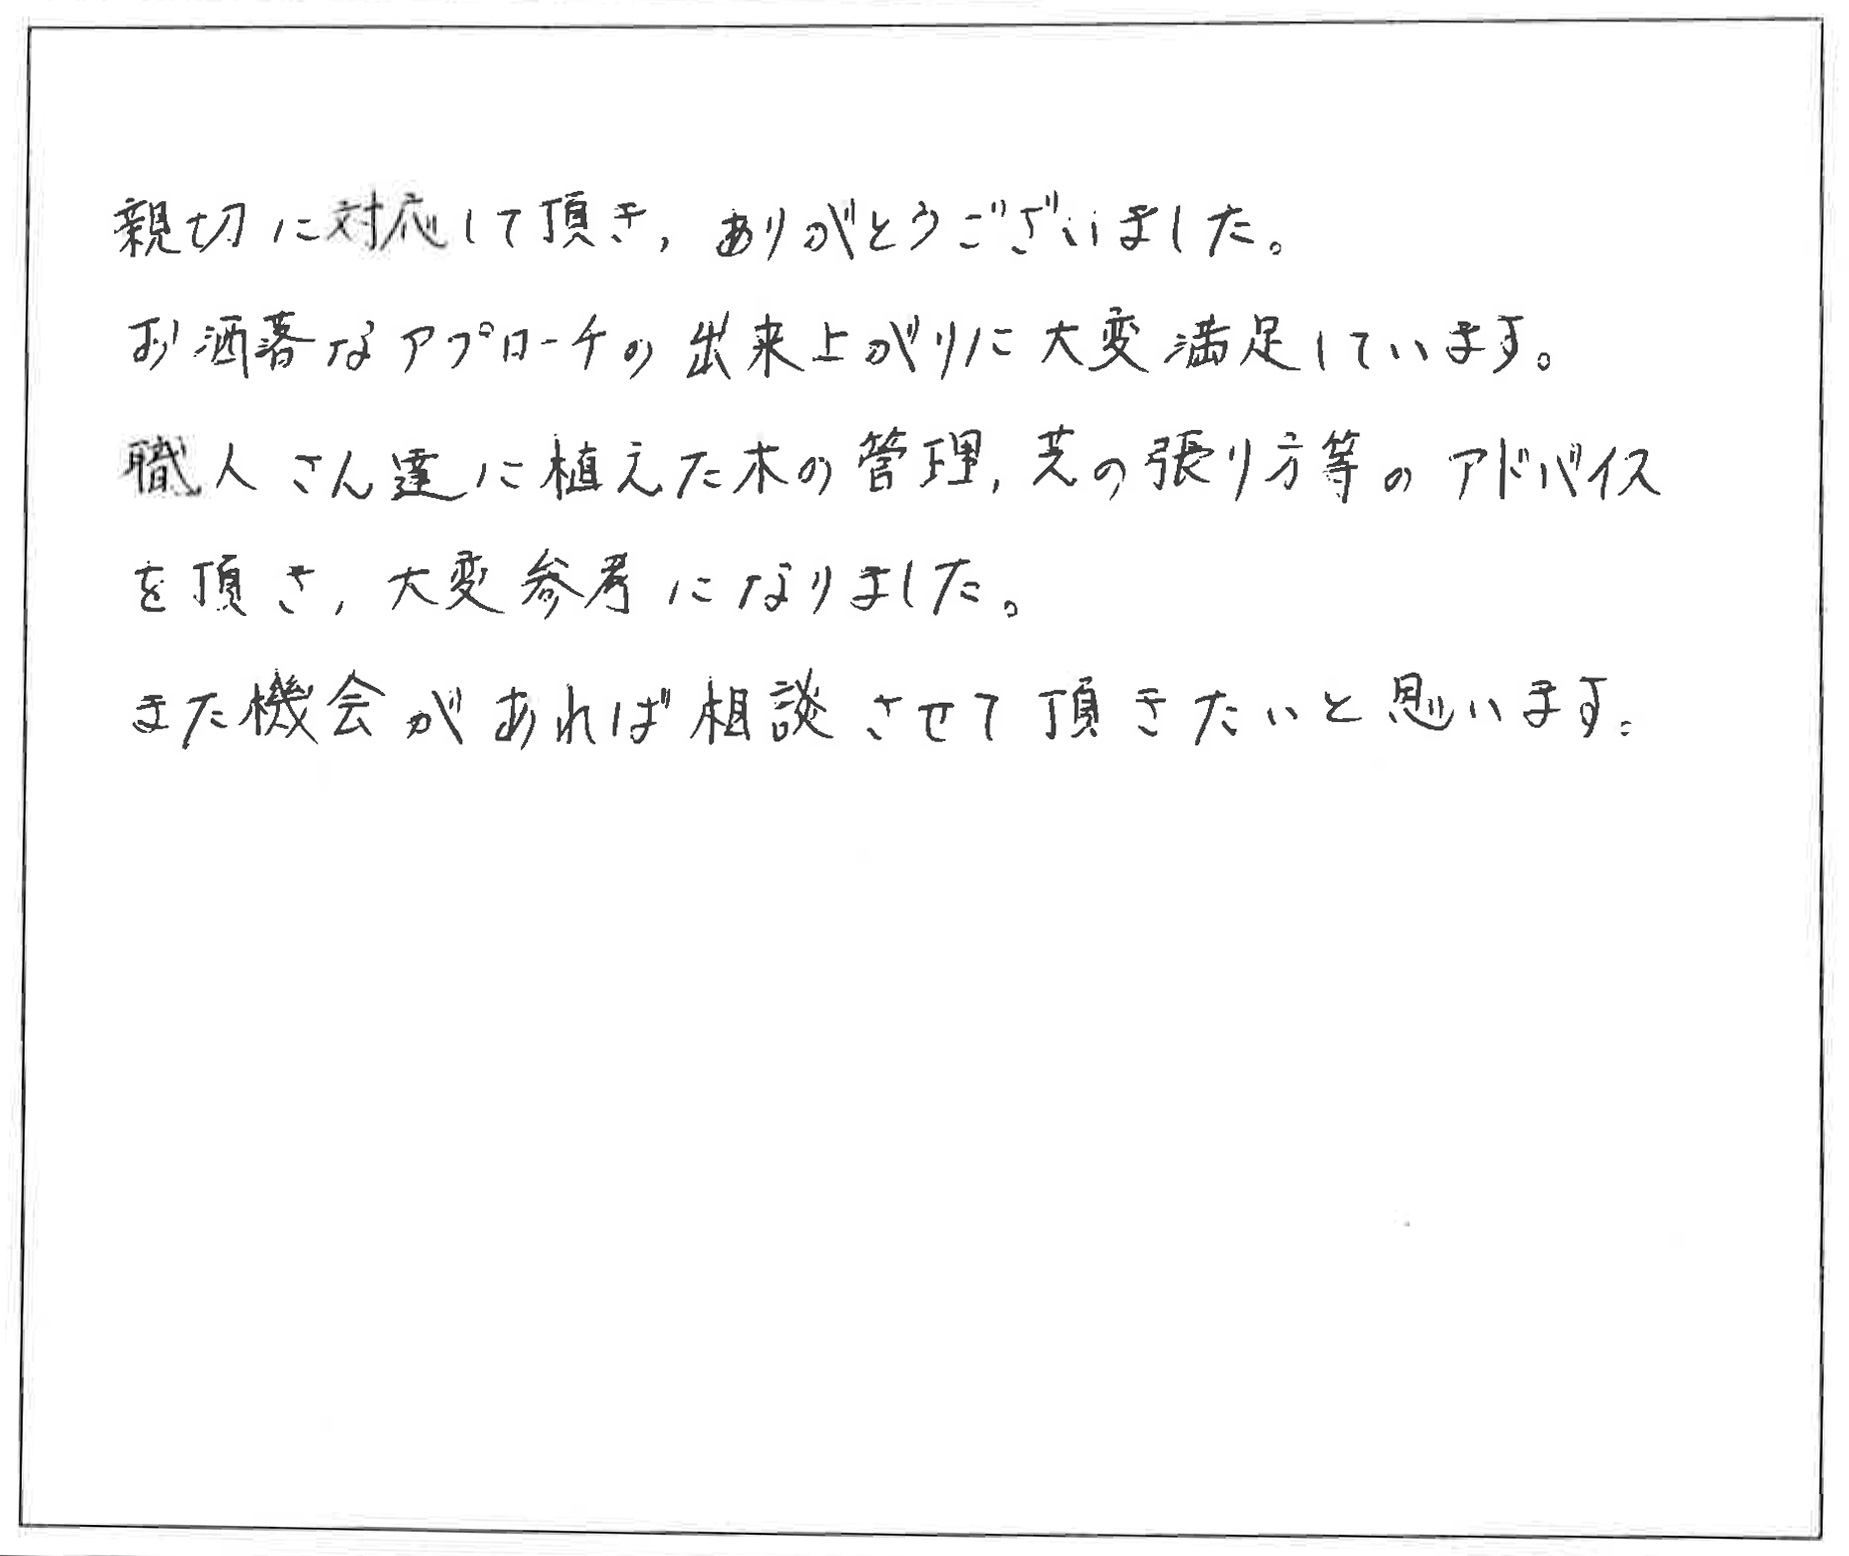 親切に対応して頂き、ありがとうございました。
お洒落なアプローチの出来上がりに大変満足しています。
職人さん達に植えた木の管理、芝の張り方等のアドバイス
を頂き、大変参考になりました。
また機会があれば相談させて頂きたいと思います。